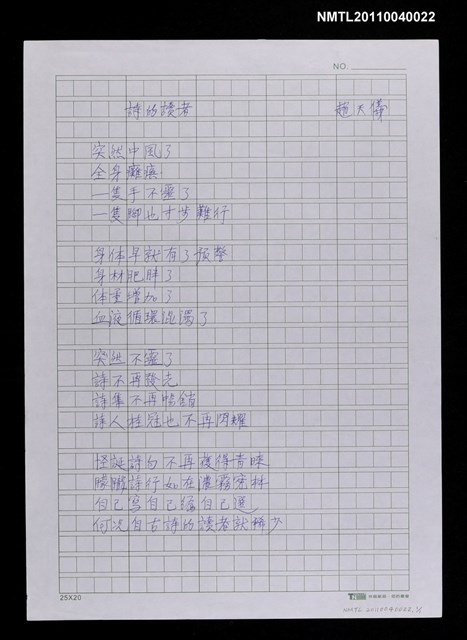 NMTL20110040022
NO.
詩的讀者 趙天儀
突然中風了
全身癱瘓
一隻手不靈了
一隻腳也寸步難行
身体早就有了預警
身材肥胖了
体重增加了
血液循環混濁了
突然不靈了
詩不再發光
詩集不再暢銷
詩人桂冠也不再閃耀
怪誕詩句不再獲得青睞
朦朧詩行如在濃霧密林
自己寫自己編自己選
何況自古詩的讀者就稀少
25X20
NMTL 20110040022, 1/1